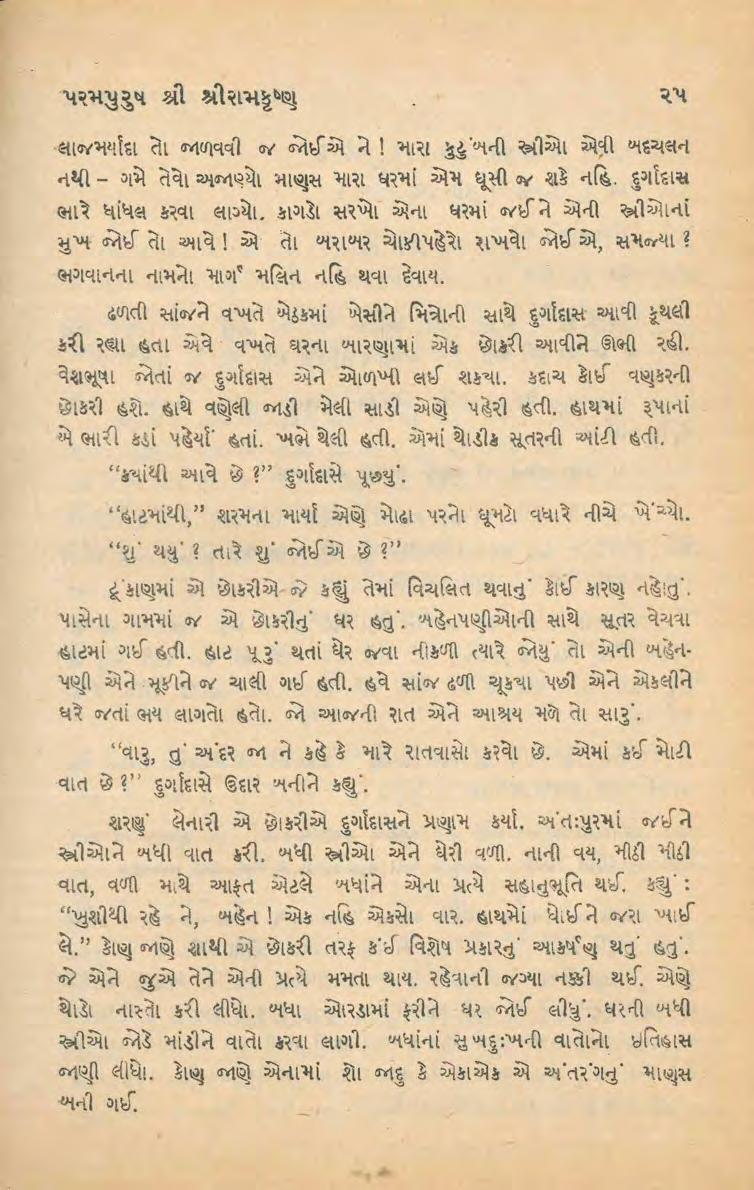 પરમપુરુષ શ્રી શ્રીરામકૃષ્ણ ૨૫
લાજમર્યાદા તો જાળવવી જ જોઈએ ને ! મારા કુટુંબની સ્ત્રીઓ એવી બદચલન
નથી – ગમે તેવો અજાણ્યો માણસ મારા ઘરમાં એમ ઘૂસી જ શકે નહિ. દુર્ગાદાસ
ભારે ધાંધલ કરવા લાગ્યો. કાગડો સરખો એના ઘરમાં જઈને એની સ્ત્રીઓનાં
મુખ જોઈ તો આવે ! એ તો બરાબર ચોકીપહેરો રાખવો જોઈએ, સમજ્યા ?
ભગવાનના નામનો માર્ગ મલિન નહિ થવા દેવાય.
ઢળતી સાંજને વખતે બેઠકમાં બેસીને મિત્રોની સાથે દુર્ગાદાસ આવી કૂથલી
કરી રહ્યા હતા એવે વખતે ઘરના બારણામાં એક છોકરી આવીને ઊભી રહી.
વેશભૂષા જોતાં જ દુર્ગાદાસ એને ઓળખી લઈ શકયા. કદાચ કોઈ વણકરની
છોકરી હશે. હાથે વણેલી જાડી મેલી સાડી એણે પહેરી હતી. હાથમાં રૂપાનાં
એ ભારી કડાં પહેર્યાં હતાં. ખભે થેલી હતી. એમાં થોડીક સૂતરની આંટી હતી.
“કયાંથી આવે છે ?” દુર્ગાદાસે પૂછ્યું.
“હાટમાંથી,” શરમના માર્યા એણે મોઢા પરનો ઘૂમટો વધારે નીચે ખેંચ્યો.
“શું થયું ? તારે શું જોઈએ છે ?”
ટૂંકાણમાં એ છોકરીએ જે કહ્યું તેમાં વિચલિત થવાનું કોઈ કારણ નહોતું.
પાસેના ગામમાં જ એ છોકરીનું ઘર હતું. બહેનપણીઓની સાથે સૂતર વેચવા
હાટમાં ગઈ હતી. હાટ પૂરું થતાં ઘેર જવા નીકળી ત્યારે જોયું તો એની બહેન-
પણી એને મૂકીને જ ચાલી ગઈ હતી. હવે સાંજ ઢળી ચૂકયા પછી એને એકલીને
ઘરે જતાં ભય લાગતો હતો. જો આજની રાત એને આશ્રય મળે તો સારું.
“વારુ, તું અંદર જા ને કહે કે મારે રાતવાસો કરવો છે. એમાં કઈ મોટી
વાત છે ?” દુર્ગાદાસે ઉદાર બનીને કહ્યું.
શરણું લેનારી એ છોકરીએ દુર્ગાદાસને પ્રણામ કર્યા. અંતઃપુરમાં જઈને
સ્ત્રીઓને બધી વાત કરી. બધી સ્ત્રીઓ એને ઘેરી વળી. નાની વય, મીઠી મીઠી
વાત, વળી માથે આફત એટલે બધાંને એના પ્રત્યે સહાનુભૂતિ થઈ. કહ્યું :
“ખુશીથી રહે ને, બહેન ! એક નહિ એકસો વાર. હાથમોં ધોઈને જરા ખાઈ
લે.” કોણ જાણે શાથી એ છોકરી તરફ કંઈ વિશેષ પ્રકારનું આકર્ષણ થતું હતું.
જે એને જુએ તેને એની પ્રત્યે મમતા થાય. રહેવાની જગ્યા નક્કી થઈ. એણે
થોડો નાસ્તો કરી લીધો. બધા ઓરડામાં ફરીને ઘર જોઈ લીધું. ઘરની બધી
સ્ત્રીઓ જોડે માંડીને વાતો કરવા લાગી. બધાંનાં સુખદુઃખની વાતોનો ઇતિહાસ
જાણી લીધો. કોણ જાણે એનામાં શો જાદુ કે એકાએક એ અંતરંગનું માણસ
બની ગઈ.